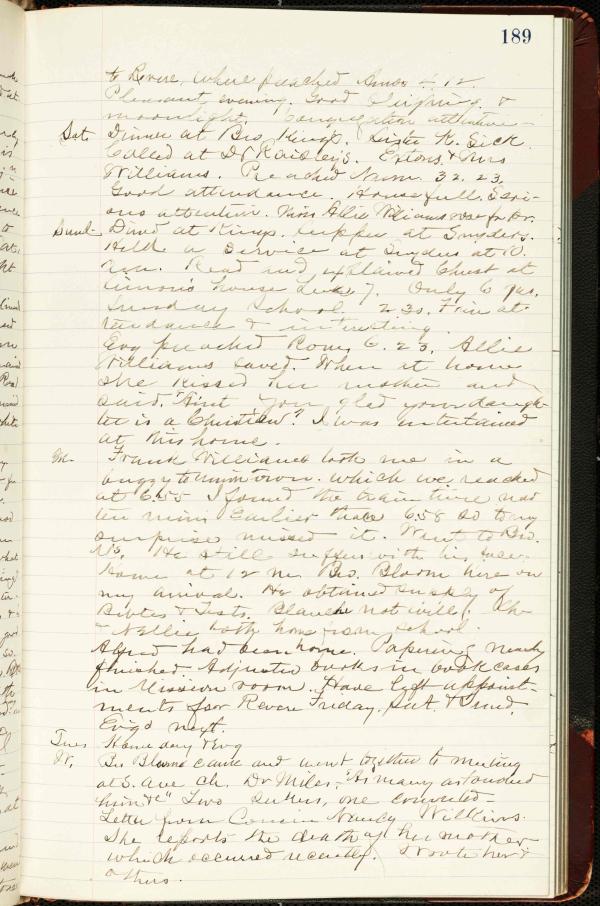 189
to Revere, where preached Amos 4. 12.
Pleasant evening. Good &
moonlight. Congregation attentive -
Sat. Dinner at Bro King's. Sister K. Sick.
Called at Dr Raidley's. & Mrs
Williams. Preached Num. 32. 23.
Good attendance. House full. Seri-
ous attention. Miss Allie Williams rose for Pr.
Sund- Dined at Kings. Supper at Snyders.
Held a service at Snyders at 10.
Read and explained Christ at
Simon's house Luke 7. Only 6 prs.
Sunday School. 2 30. Fair at-
tendance & interesting.
Evg preached Rom. 6. 23. Allie
Williams saved. When at home
she kissed her mother and
said. "Aint you glad your daugh-
ter is a Christian". I was entertained
at this home.
M. Frank Williams took me in a
buggy to Uniontown. which we reached
at 6.55 I found the train time was
ten mins earlier than 6 58 so to my
surprise missed it. Went to Bro.
N's. He still suffers with his face.
Home at 12 m. Bro. Bloom here on
my arrival. He obtained supply of
Bibles & Tests. Blanche not well. She
& Nellie both home from school.
Alfred had been home. Papering nearly
finished. Adjusted books in book cases
in Mission room. Have left appoint-
ments for Revere Friday, Sat & Sund.
Evg's next.
Tues Home day & Evg
W. Bro Bloome came and went together to meeting
at S. Ave Ch. Dr Miles. "As many as touched
him &c" Two seekers, one converted -
Letter from Cousin Nancy Williams.
She reports the death of her mother
which occurred recently. Wrote her &
others.